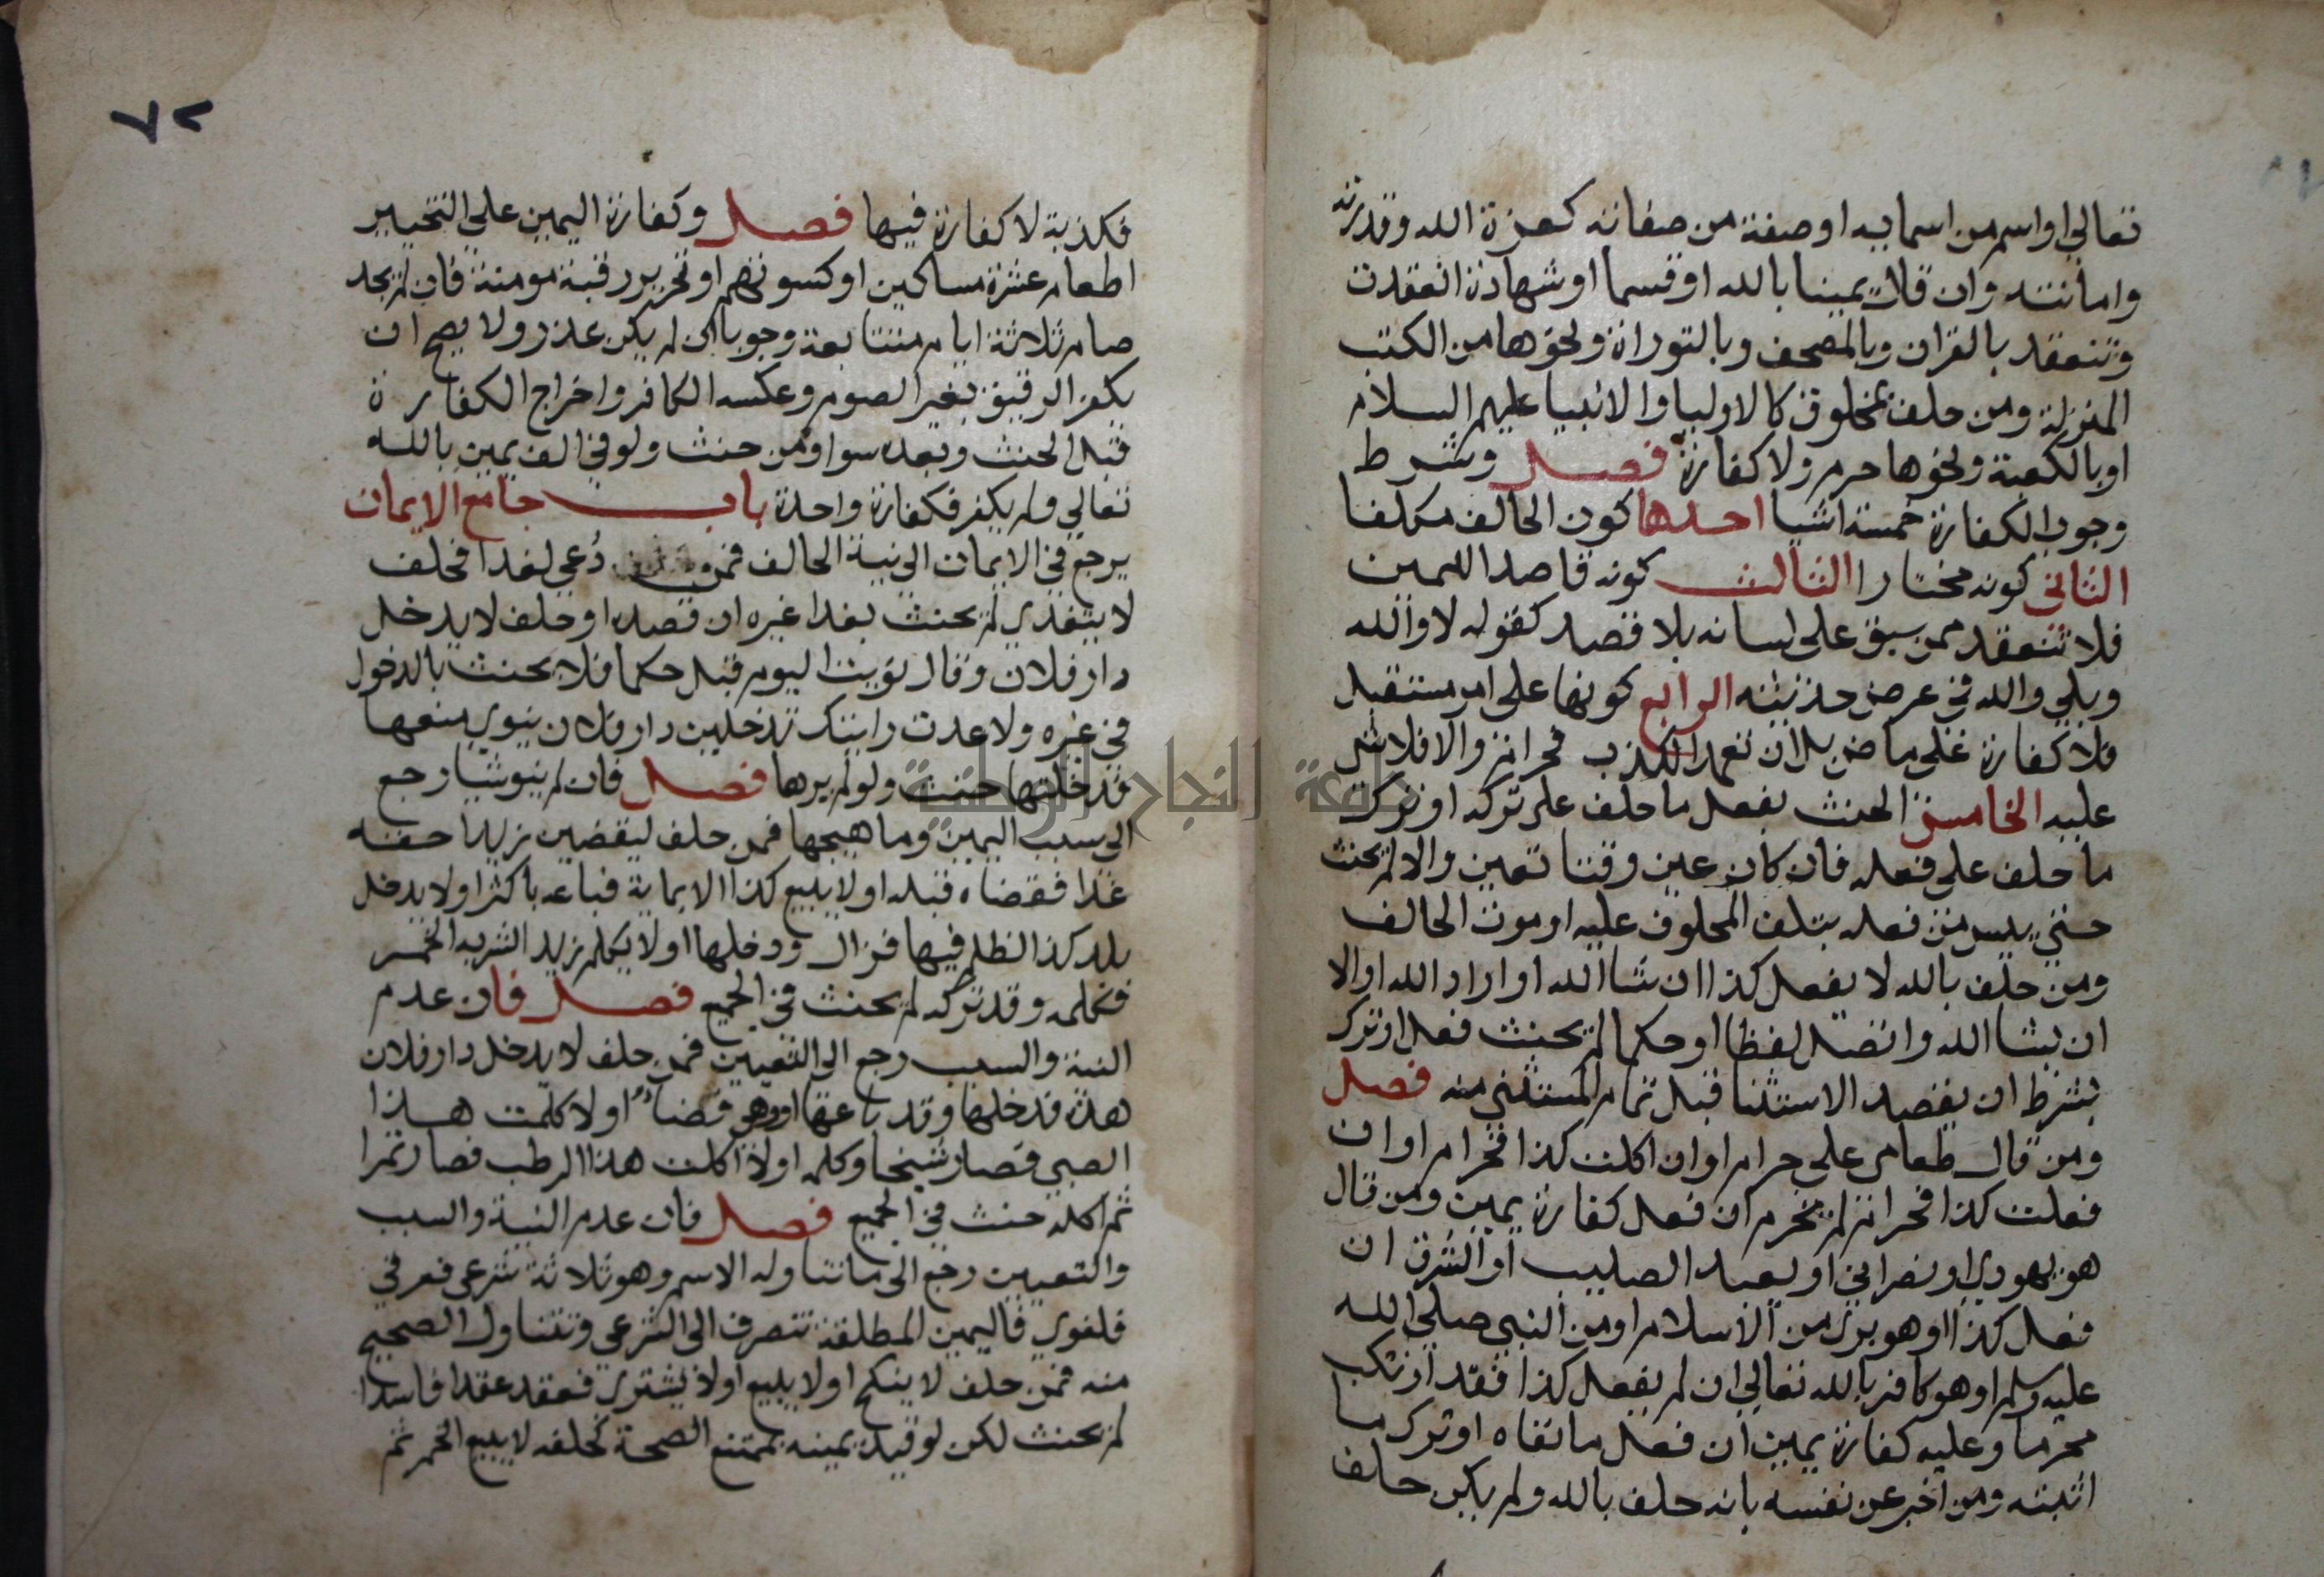 تعالي او اسم من اسمايه او صفة من صفاته كعزة الله وقدرته
وامانته وان قال يمينا بالله او قسما او شهادة انعقدت
وتنعقد بالقران وبالمصحف وبالتوراة ونحوها من الكتب
المنزلة ومن حلف بمخلوق كالاوليا والانبيا عليهم السلام
او بالكعبة ونحوها حرم ولا كفارة فصل وشرط
وجوب الكفارة خمسة اشيا احدها كون الحالف مكلفا
الثاني كونه مختارا الثالث كونه قاصدا لليمين
فلا تنعقد ممن سبق على لسانه بلا قصد كقوله لا والله
وبلي والله في عرض حديثه الرابع كونها على امر مستقبل
فلا كفارة على ماض بل ان تعمد الكذب فحرام والا فلا شي
عليه الخامس الحنث بفعل ما حلف على تركه او ترك
ما حلف على فعله فان كان عين وقتا تعين والا لم يحنث
حتي ييس من فعله بتلف المحلوف عليه او موت الحالف
ومن حلف بالله لا يفعل كذا ان شا الله او اراد الله او الا
ان يشا الله واتصل لفظا او حكما لم يحنث فعل او ترك
بشرط ان يقصد الاستثنا قبل تمام المستثني منه فصل
ومن قال طعامى على حرام او ان اكلت كذا فحرام او ان
فعلت كذا فحرام لم يحرم ان فعل كفارة يمين ومن قال
هو يهودي او نصراني او يعبد الصليب او الشرق ان
فعل كذا او هو برى من الاسلام او من النبي صلي الله
عليه وسلم او هو كافر بالله تعالي ان لم يفعل كذا فقد ارتكب
محرما وعليه كفارة يمين ان فعل ما نفاه او ترك ما
اثبته ومن اخبر عن نفسه بانه حلف بالله ولم يكن حلف
٧٨
فكذبة لا كفارة فيها فصل وكفارة اليمين علي التخيير
اطعام عشرة مساكين او كسوتهم او تحرير رقبة مومنة فان لم يجد
صام ثلاثة ايام متتابعة وجوبا ان لم يكن عذر ولا يصح ان
يكفر الرقيق بغير الصوم وعكسه الكافر واخراج الكفارة
قبل الحنث وبعده سوا ومن حنث ولو في الف يمين بالله
تعالي ولم يكفر فكفارة واحدة باب جامع الايمان
يرجع في الايمان الي نية الحالف فمن دُعي لغدا فحلف
لا يتغدي لم يحنث بغدا غيره ان قصده او حلف لا يدخل
دار فلان وقال نويت اليوم قبل حكما فلا يحنث بالدخول
في غيره ولا عدت رايتك تدخلين دار فلان ينوي منعها
فدخلتها حنث ولو لم يرها فصل فان لم ينو شيا رجع
الي سبب اليمين وما هيجها فمن حلف ليقضين زيدا حقه
غدا فقضاه قبله او لا يبيع كذا الا بماية فباعه باكثر او لا يدخل
بلد كذا لظلم فيها فزال ودخلها او لا يكلم زيد الشربه الخمر
فكلمه وقد تركه لم يحنث في الجميع فصل فان عدم
النية والسبب رجع الى التعيين فمن حلف لا يدخل دار فلان
هذه فدخلها وقد باعها او وهو فضا او لا كلمت هذا
الصبي فصار شيخا وكلمه او لا اكلت هذا الرطب فصار تمرا
ثم اكله حنث في الجميع فصل فان عدم النية والسبب
والتعيين رجع الى ما تناوله الاسم وهو ثلاثة شرعي فعرفي
فلغوي فاليمين المطلقة تنصرف الى الشرعي وتتناول الصحيح
منه فمن حلف لا ينكح او لا يبيع او لا يشتري فعقد عقدا فاسدا
لم يحنث لكن لو قيد يمينه بممتنع الصحة كحلفه لا يبيع الخمر ثم
جامعة النجاح الوطنية